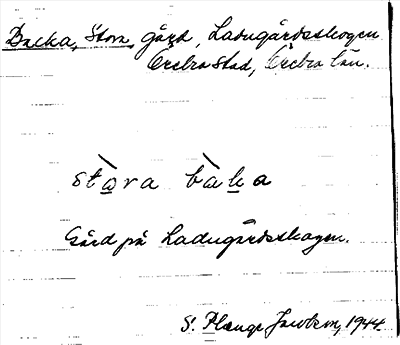 Backa, Stora, gård, Ladugårdsskogen
Örebro stad, Örebro län.
stòra bàka
Gård på Ladugårdsskogen.
S. Plenge Jacobsen, 1944.